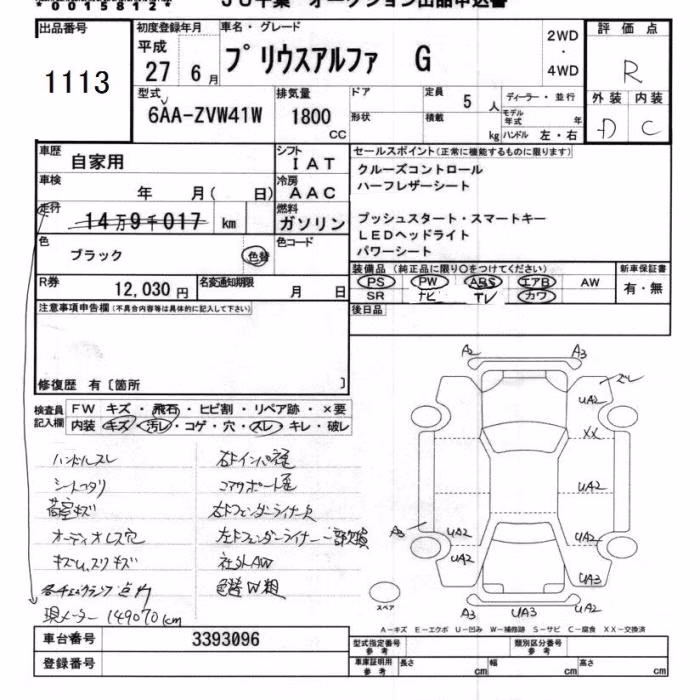 出品番号
1113
初度登録年月
平成
27 6月
車名・グレード
プリウスアルファ G
2WD
・
4WD
評価点
R
外装 内装
D C
型式
6AA-ZVW41W
排気量
1800
CC
ドア
形状
定員 5 人
積載 kg
ディーラー・並行
モデル年式 年
ハンドル 左・右
車歴
自家用
シフト
IAT
車検
年 月( 日)
冷房
AAC
走行
14万9千017 km
燃料
ガソリン
色
ブラック 色替
色コード
R券
12,030円
名変通知期限
月 日
セールスポイント(正常に機能するものに限ります)
クルーズコントロール
ハーフレザーシート
プッシュスタート・スマートキー
LEDヘッドライト
パワーシート
装備品(純正品に限り○をつけてください)
PS PW ABS エアB AW
SR ナビ TV カワ
新車保証書
有・無
後日品
注意事項申告欄(不具合内容等は具体的に記入して下さい)
修復歴 有〔箇所 〕
検査員記入欄
FW キズ・飛石・ヒビ割・リペア跡・×要
内装 キズ・汚レ・コゲ・穴・スレ・キレ・破レ
ハンドルスレ
シートヨタリ
荷室キズ
オーディオレス穴
キズ
点灯
現メーター 149070km
右ドインパネ
コアサポート
右Fフェンダーライナー欠
左Fフェンダーライナー一部欠損
社外AW
色替W粗
A2 A3
ズレ
UA2
XX
UA2
A3 UA2 UA2
UA2 UA3
A3 UA3 UA2
スペア
A-キズ E-エクボ U-凹み W-補修跡 S-サビ C-腐食 XX-交換済
車台番号
3393096
登録番号
型式指定番号
参考
類別区分番号
参考
車庫証明用
参考
長さ cm 幅 cm 高さ cm